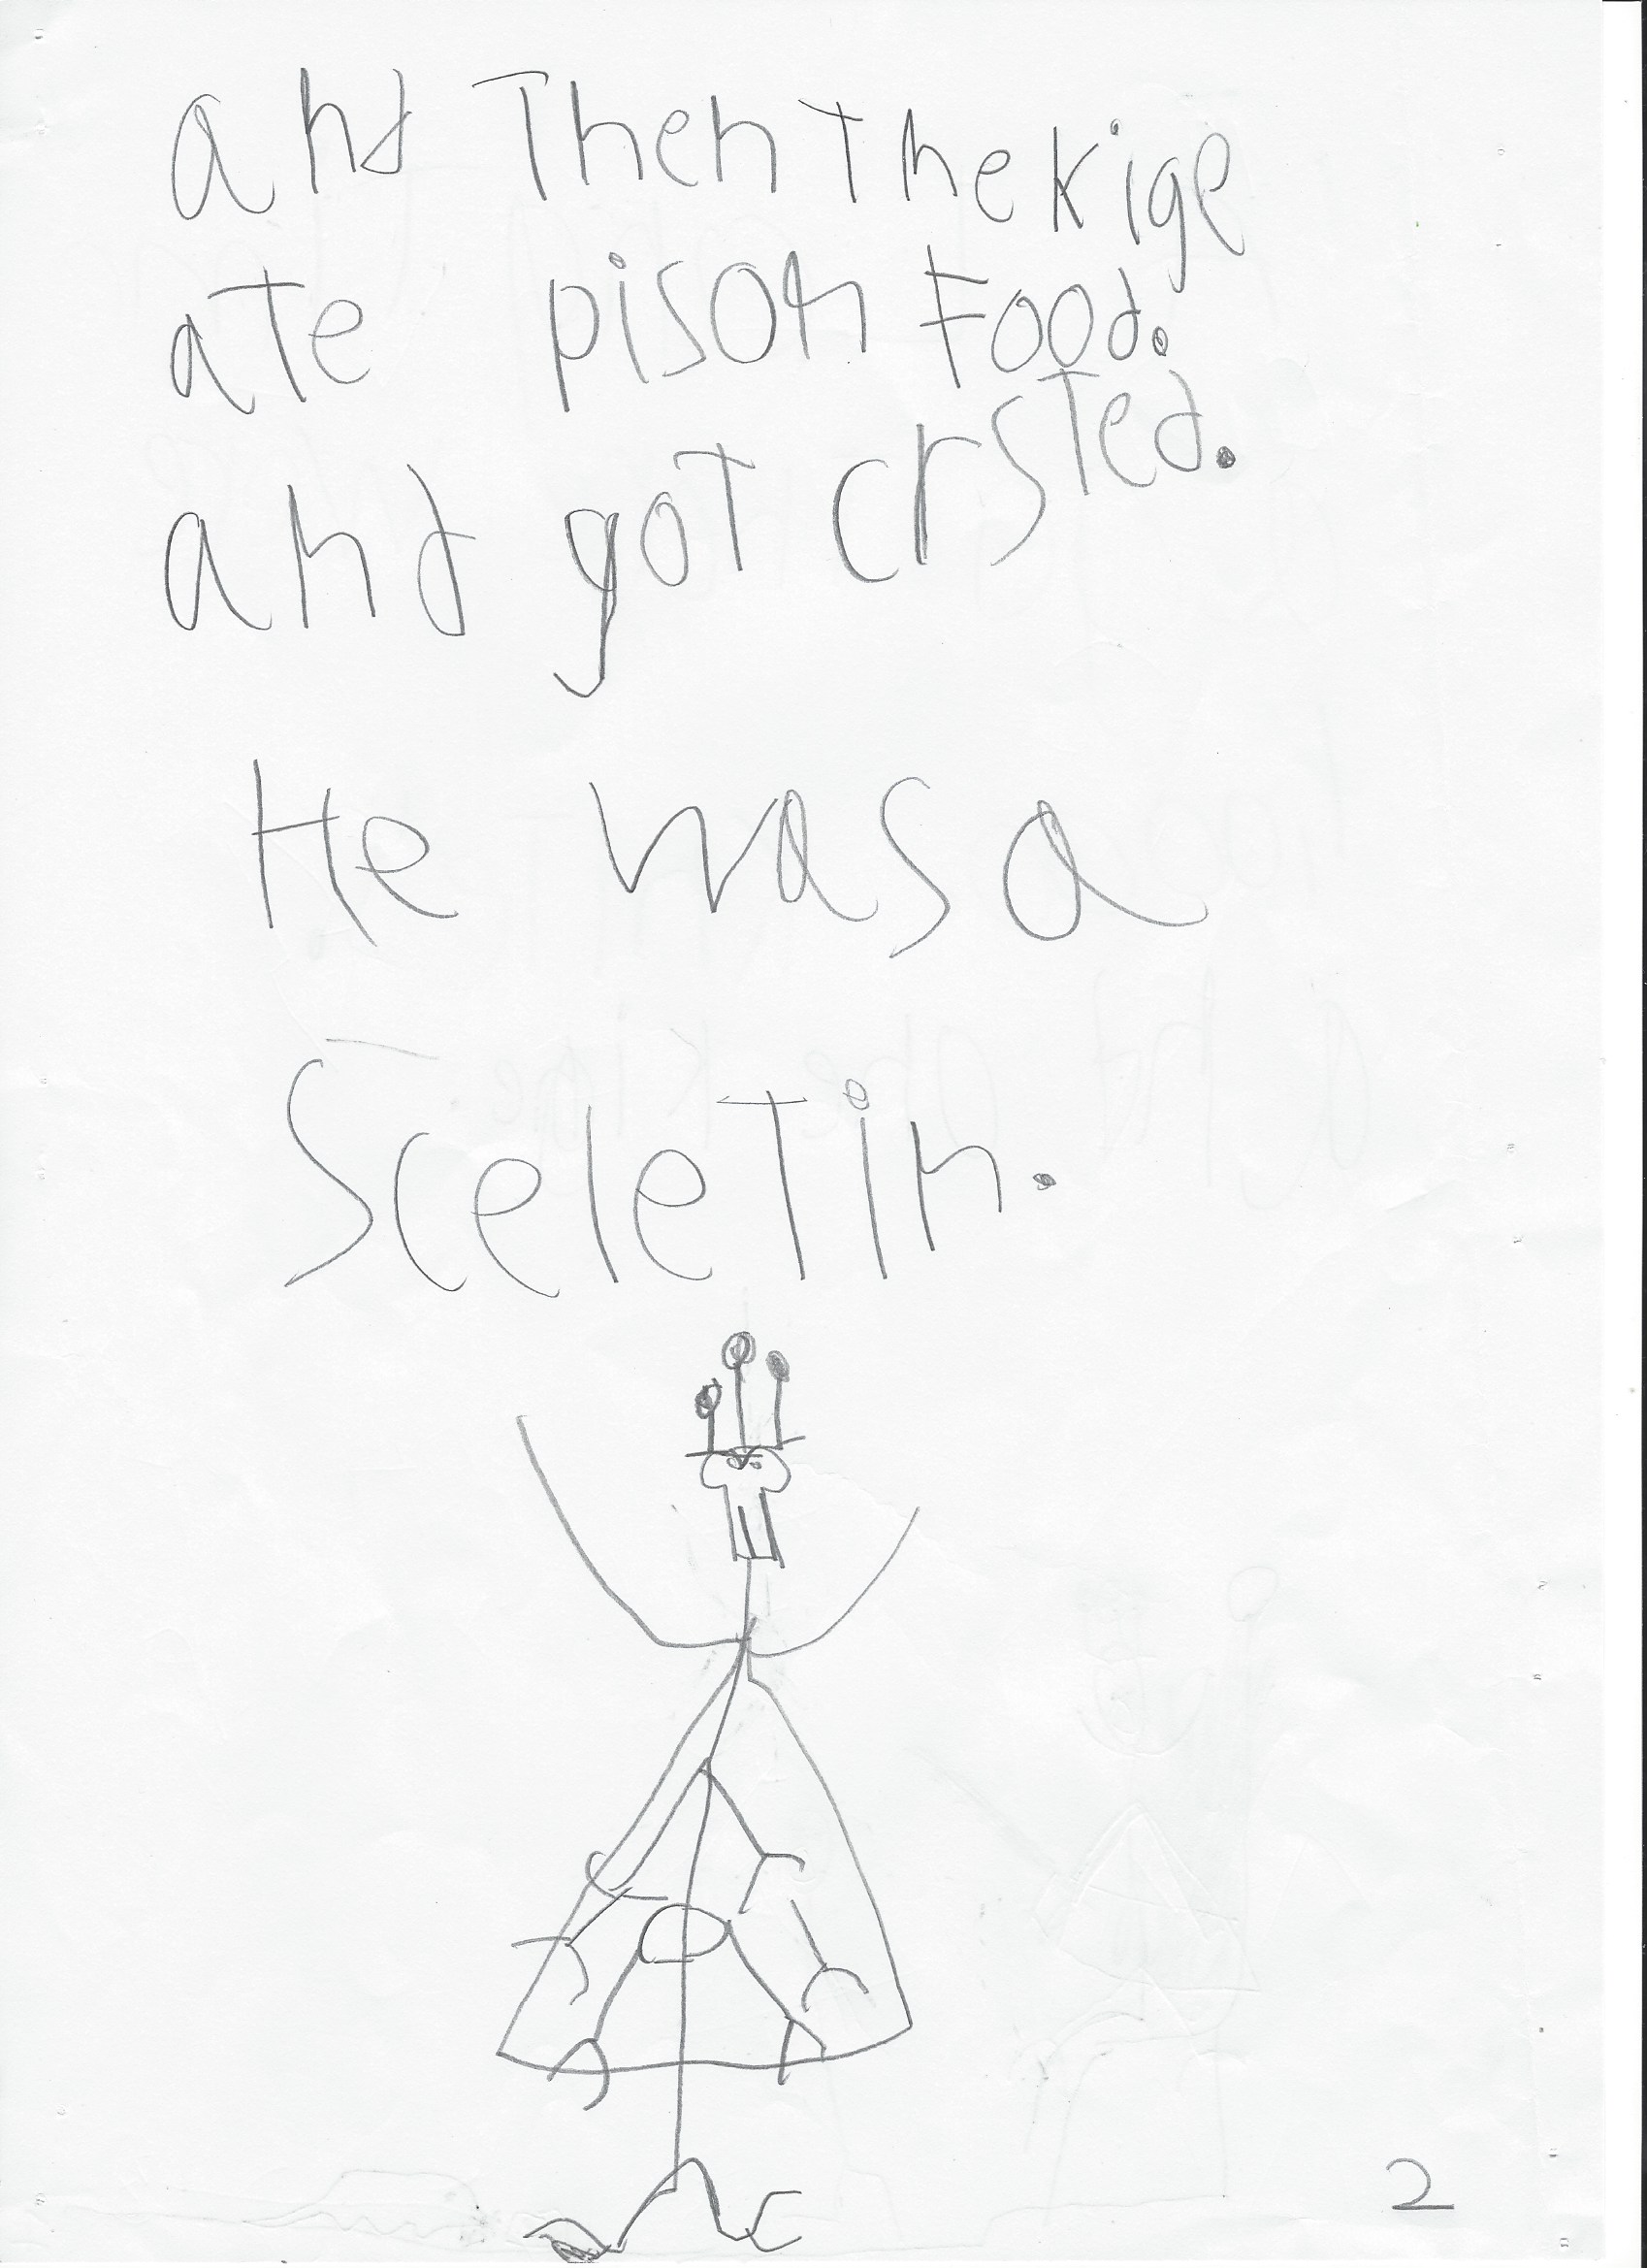 and Then The kige
aTe pison Food.
and goT crsTed.
He was a
SceleTin.
2